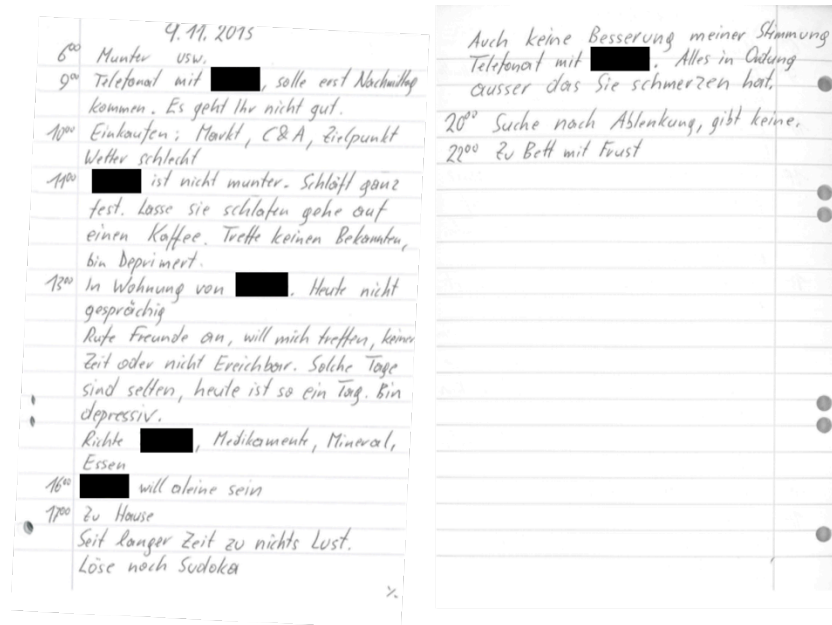 9.11.2015
6⁰⁰ Munter usw.
9⁰⁰ Telefonat mit , solle erst Nachmittag
kommen. Es geht Ihr nicht gut.
10⁰⁰ Einkaufen: Markt, C&A, Zielpunkt
Wetter schlecht
11⁰⁰ ist nicht munter. Schläft ganz
fest. Lasse sie schlafen gehe auf
einen Kaffee. Treffe keinen Bekannten,
bin Deprimert.
13⁰⁰ In Wohnung von . Heute nicht
gesprächig
Rufe Freunde an, will mich treffen, keiner
Zeit oder nicht Ereichbar. Solche Tage
sind selten, heute ist so ein Tag. Bin
depressiv.
Richte , Medikamente, Mineral,
Essen
16⁰⁰ will aleine sein
17⁰⁰ Zu Hause
Seit langer Zeit zu nichts Lust.
Löse noch Sudoka
%.
Auch keine Besserung meiner Stimmung
Telefonat mit . Alles in Ordung
ausser das Sie schmerzen hat.
20⁰⁰ Suche nach Ablenkung, gibt keine.
22⁰⁰ Zu Bett mit Frust